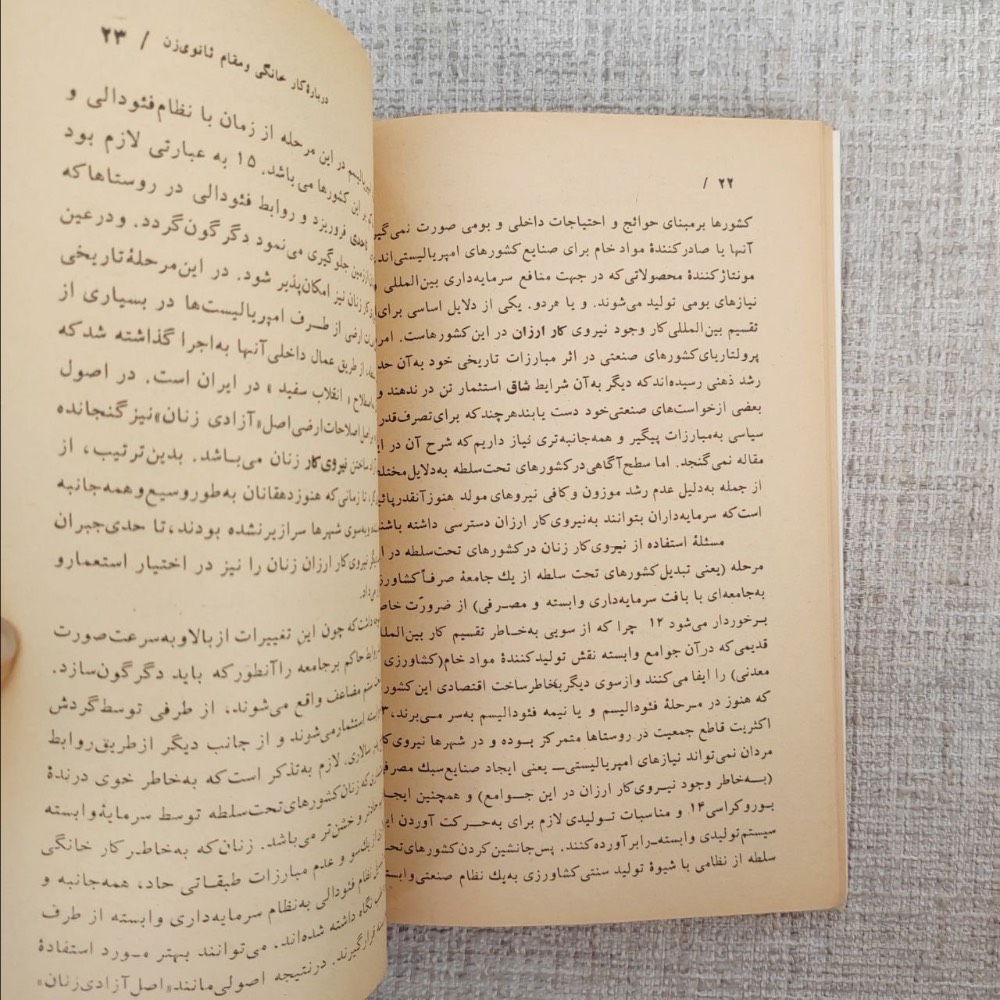 ۲۲ /
کشورها برمبنای حوائج و احتیاجات داخلی و بومی صورت نمی‌گیر
آنها یا صادرکنندهٔ مواد خام برای صنایع کشورهای امپریالیستی‌اند
مونتاژ کنندهٔ محصولاتی‌که در جهت منافع سرمایه‌داری بین‌المللی
نیازهای بومی تولید می‌شوند. و یا هردو. یکی از دلایل اساسی برای
تقسیم بین‌المللی‌کار وجود نیروی کار ارزان در این کشورهاست. امر
پرولتاریای کشورهای صنعتی در اثر مبارزات تاریخی خود به‌آن حد
رشد ذهنی رسیده‌اند که دیگر به‌آن شرایط شاق استثمار تن درندهند و
بعضی ازخواست‌های صنعتی‌خود دست یابند هرچند که برای تصرف‌قدر
سیاسی به‌مبارزات پیگیر و همه‌جانبه‌تری نیاز داریم‌که شرح آن در این
مقاله نمی‌گنجد. اما سطح‌آگاهی‌در کشورهای تحت‌سلطه به‌دلایل مختلف
از جمله به‌دلیل عدم رشد موزون و کافی نیروهای مولد هنوز آنقدر پائی
است‌که سرمایه‌داران بتوانند به‌نیروی‌کار ارزان دسترسی داشته باشند
مسئلهٔ استفاده از نیروی‌کار زنان در کشورهای تحت‌سلطه در ا
مرحله (یعنی تبدیل‌کشورهای تحت سلطه از یك جامعهٔ صرفاً کشاورزی
به‌جامعه‌ای با بافت سرمایه‌داری وابسته و مصرفی) از ضرورت خاص
برخوردار می‌شود ۱۲ چرا که از سویی به‌خاطر تقسیم کار بین‌المللی
قدیمی‌که درآن جوامع وابسته نقش تولیدکنندهٔ مواد خام (کشاورزی
معدنی) را ایفا می‌کنند وازسوی دیگر بخاطر ساخت اقتصادی این‌کشور
که هنوز در مرحلهٔ فئودالیسم و یا نیمه فئودالیسم به‌سر می‌برند،
اکثریت قاطع جمعیت در روستاها متمرکز بوده و در شهرها نیروی‌کار
مردان نمی‌تواند نیازهای امپریالیستی ــ یعنی ایجاد صنایع سبك مصرفی
(به‌خاطر وجود نیروی‌کار ارزان در این جوامع) و همچنین ایجا
بوروکراسی۱۴ و مناسبات تولیدی لازم برای به‌حرکت آوردن این
سیستم تولیدی وابسته ــ رابرآورده‌کنند. پس‌جانشین کردن کشورهای‌تحت
سلطه از نظامی با شیوهٔ تولید سنتی کشاورزی به‌یك نظام صنعتی وابسته
دربارهٔ کار خانگی ومقام ثانوی‌زن / ۲۳
در این مرحله از زمان با نظام‌فئودالی و
این کشورها می‌باشد. ۱۵ به عبارتی لازم بود
فروریزد و روابط فئودالی در روستاها که
جلوگیری می‌نمود دگرگون‌گردد. و درعین
کار زنان نیز امکان‌پذیر شود. در این‌مرحلهٔ تاریخی
ارضی از طرف امپریالیست‌ها در بسیاری از
از طریق عمال داخلی‌آنها به‌اجرا گذاشته شدکه
« انقلاب سفید » در ایران است. در اصول
اصلاحات‌ارضی‌اصل«آزادی زنان»نیز گنجانده
ساختن نیروی‌کار زنان می‌باشد. بدین‌ترتیب، از
تا زمانی‌که هنوز دهقانان به‌طور وسیع و همه‌جانبه
به‌سوی شهرها سرازیر نشده بودند، تا حدی جبران
نیروی‌کار ارزان زنان را نیز در اختیار استعمار و
داشت‌که چون این تغییرات از بالا و به‌سرعت‌صورت
حاکم بر جامعه را آنطور که باید دگرگون‌سازد.
ستم مضاعف واقع می‌شوند، از طرفی توسط‌گردش
استثمار می‌شوند و از جانب دیگر از طریق روابط
سالاری. لازم به‌تذکر است‌که به‌خاطر خوی درندهٔ
که زنان کشورهای‌تحت‌سلطه توسط سرمایهٔ‌وابسته
و خشن‌تر می‌باشد. زنان که به‌خاطر کار خانگی
از یك‌سو و عدم مبارزات طبقاتی حاد، همه‌جانبه و
نظام فئودالی به‌نظام سرمایه‌داری وابسته از طرف
نگاه داشته شده‌اند، می‌توانند بهتر مورد استفادهٔ
قرارگیرند. درنتیجه اصولی‌مانند«اصل‌آزادی‌زنان»